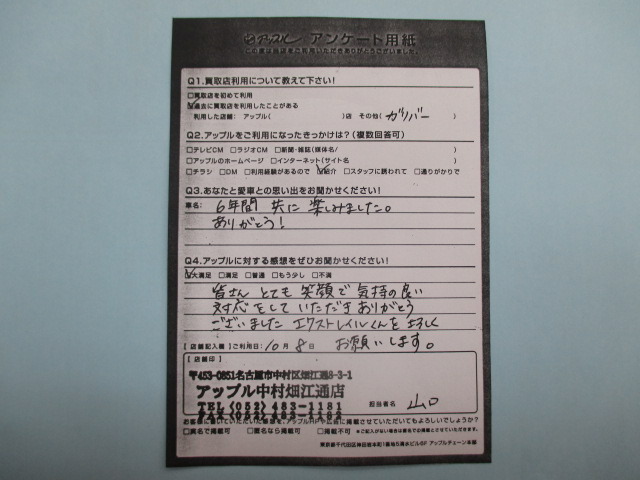 アップル アンケート用紙
この度は当店をご利用いただきありがとうございました。
Q1.買取店利用について教えて下さい!
□買取店を初めて利用
☑過去に買取店を利用したことがある
利用した店舗: アップル( )店 その他( ガリバー )
Q2.アップルをご利用になったきっかけは?(複数回答可)
□テレビCM □ラジオCM □新聞・雑誌(媒体名/ )
□アップルのホームページ □インターネット(サイト名 )
□チラシ □DM □利用経験があるので ☑紹介 □スタッフに誘われて □通りがかりで
Q3.あなたと愛車との思い出をお聞かせください!
車名: 6年間 共に 楽しみました。
ありがとう!
Q4.アップルに対する感想をぜひお聞かせください!
☑大満足 □満足 □普通 □もう少し □不満
皆さん とても 笑顔で 気持の良い
対応をして いただき ありがとう
ございました エクストレイルくんを よろしく
【店舗記入欄】ご利用日: 10月 8日 お願いします。
【店舗印】
〒453-0851名古屋市中村区畑江通8-3-1
アップル中村畑江通店
TEL(052)483-1181
FAX(052)483-1182
担当者名 山口
お客様に書いていただいた感想を、アップルHPや広告に掲載させていただいてもよろしいでしょうか?
□実名で掲載可 □匿名なら掲載可 □掲載不可 ※ご記入がない場合は匿名での掲載とさせていただきます。
東京都千代田区神田岩本町1番地5清水ビル6F アップルチェーン本部